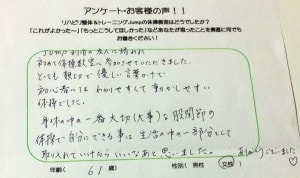 アンケート・お客様の声！！
リハビリ整体&トレーニングJumpの体操教室はどうでしたか？
「これがよかった～」「もっとこうしてほしかった」などあなたが思ったことを素直に何でも
お書きください！
Jump利用の友人に誘われ
初めて体操教室に参加させていただきました。
とっても親切で優しい言葉かけで
初心者にはわかりやすくて動きやすい
体操でした。
身体の中の一番大切(大事)な股関節の
体操で自分にできる事は生活の中の一部分として
取り入れていけたらいいなあと思いました。ありがとうございました
年齢( 61 歳) 性別( 男性 女性 )